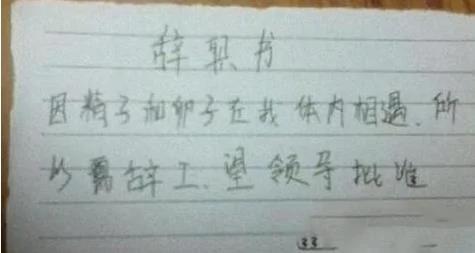 辞职书
因精子和卵子在我体内相遇.所
以需辞工.望领导批准